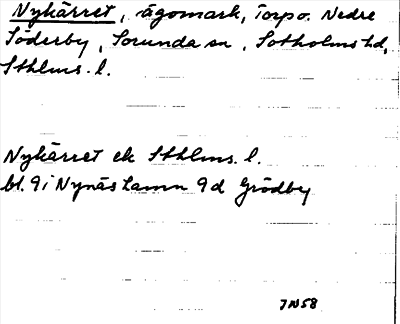 Nykärret, ägomark, Torp o. Nedre
Söderby, Sorunda sn, Sotholms hd,
Sthlms. l.
Nykärret ek Sthlms. l.
bl. 9i Nynäshamn 9d Grödby
JN58